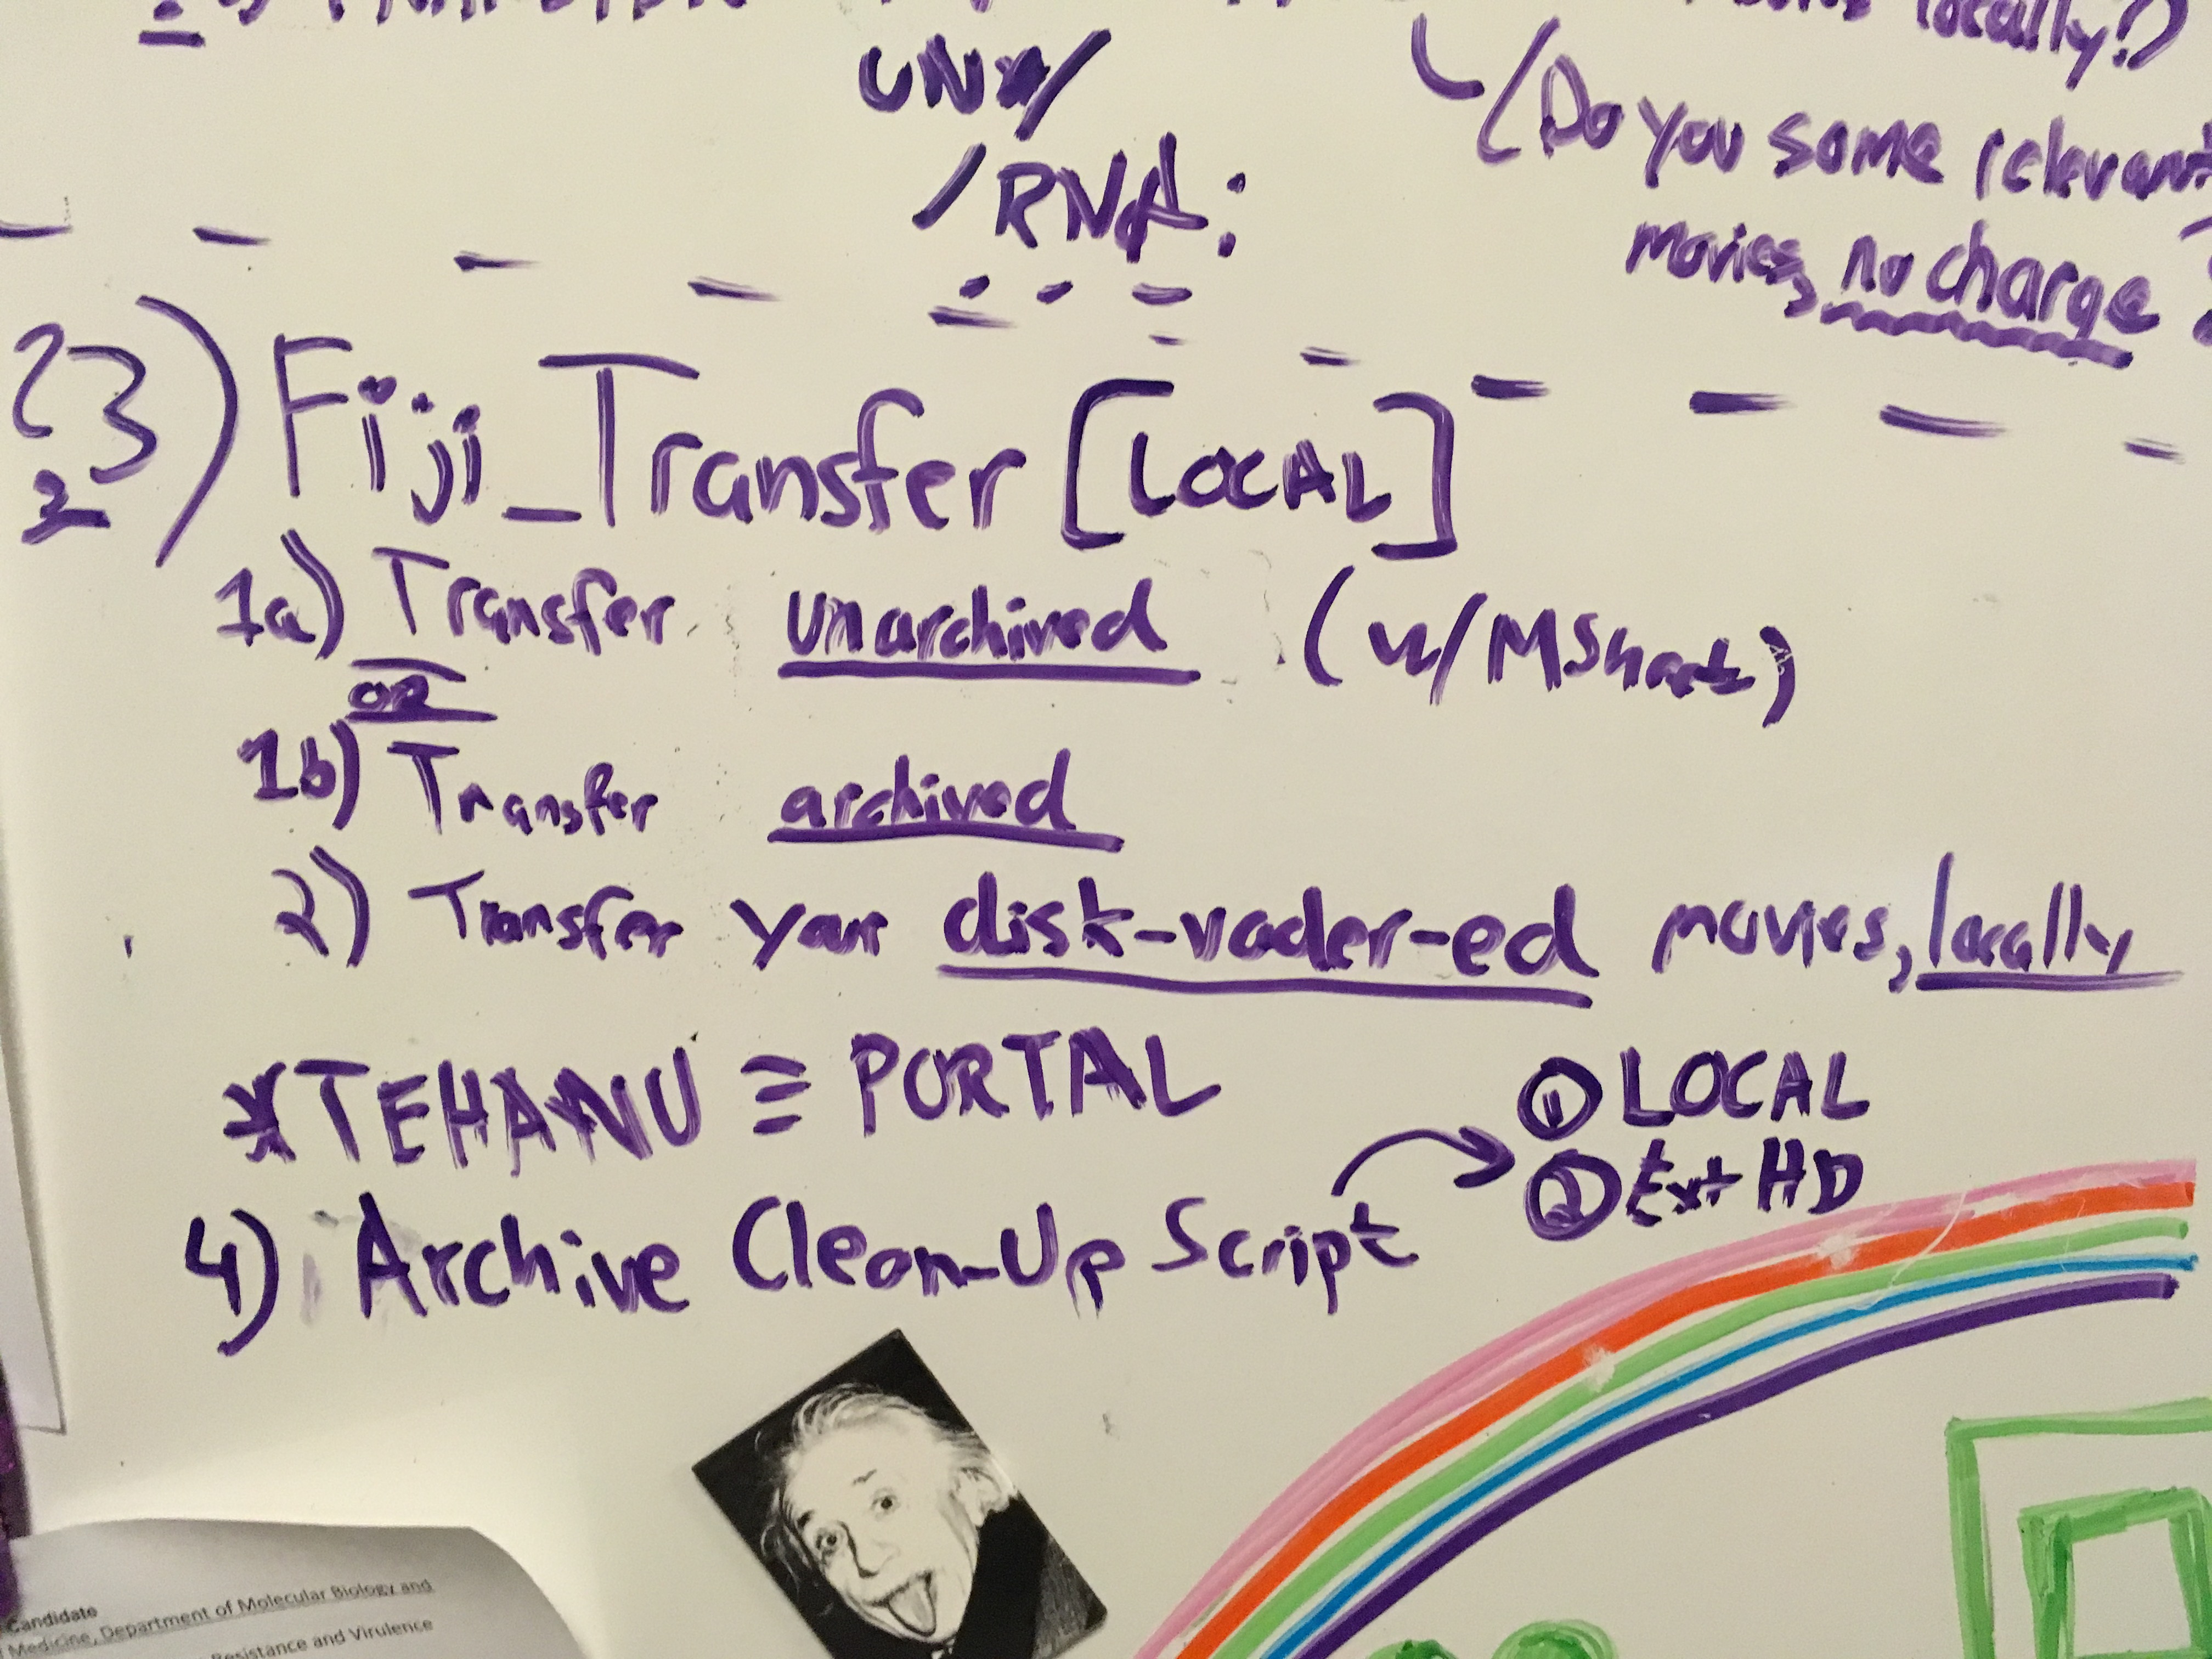 locally?)
(Do you some relevant
movies, no charge
/RNA:
3) Fiji_Transfer [LOCAL]
2
1a) Transfer unarchived (w/
OR
1b) Transfer archived
2) Transfer your disk-vader-ed movies, locally
*TEHANU ≡ PORTAL
① LOCAL
② Ext HD
4) Archive Clean-Up Script
Candidate
Medicine, Department of Molecular Biology and
Resistance and Virulence